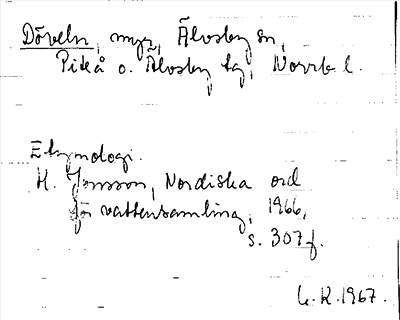 Döveln, myr, Älvsby sn,
Piteå o. Älvsby tg, Norrb. l.
Etymologi.
H. Jonsson, Nordiska ord
för vattensamling, 1966,
s. 307 f.
L. R. 1967.